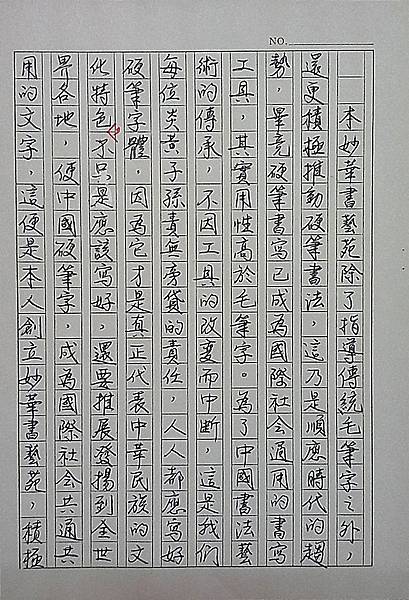 NO.
本妙華書藝苑除了指導傳統毛筆字之外，
還更積極推動硬筆書法，這乃是順應時代的趨
勢，畢竟硬筆書寫已成為國際社会通用的書寫
工具，其實用性高於毛筆字。為了中國書法藝
術的傳承，不因工具的改变而中断，這是我們
每位炎黃子孫責無旁貸的責任，人人都應寫好
硬筆字體，因為它才是真正代表中華民族的文
化特色，不只是應該寫好，還要推展發揚到全世
界各地，使中國硬筆字，成為國際社会共通共
用的文字，這便是本人創立妙華書藝苑，積極